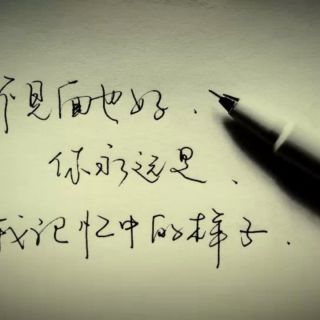 不見面也好.
你永远是.
我记忆中的样子.